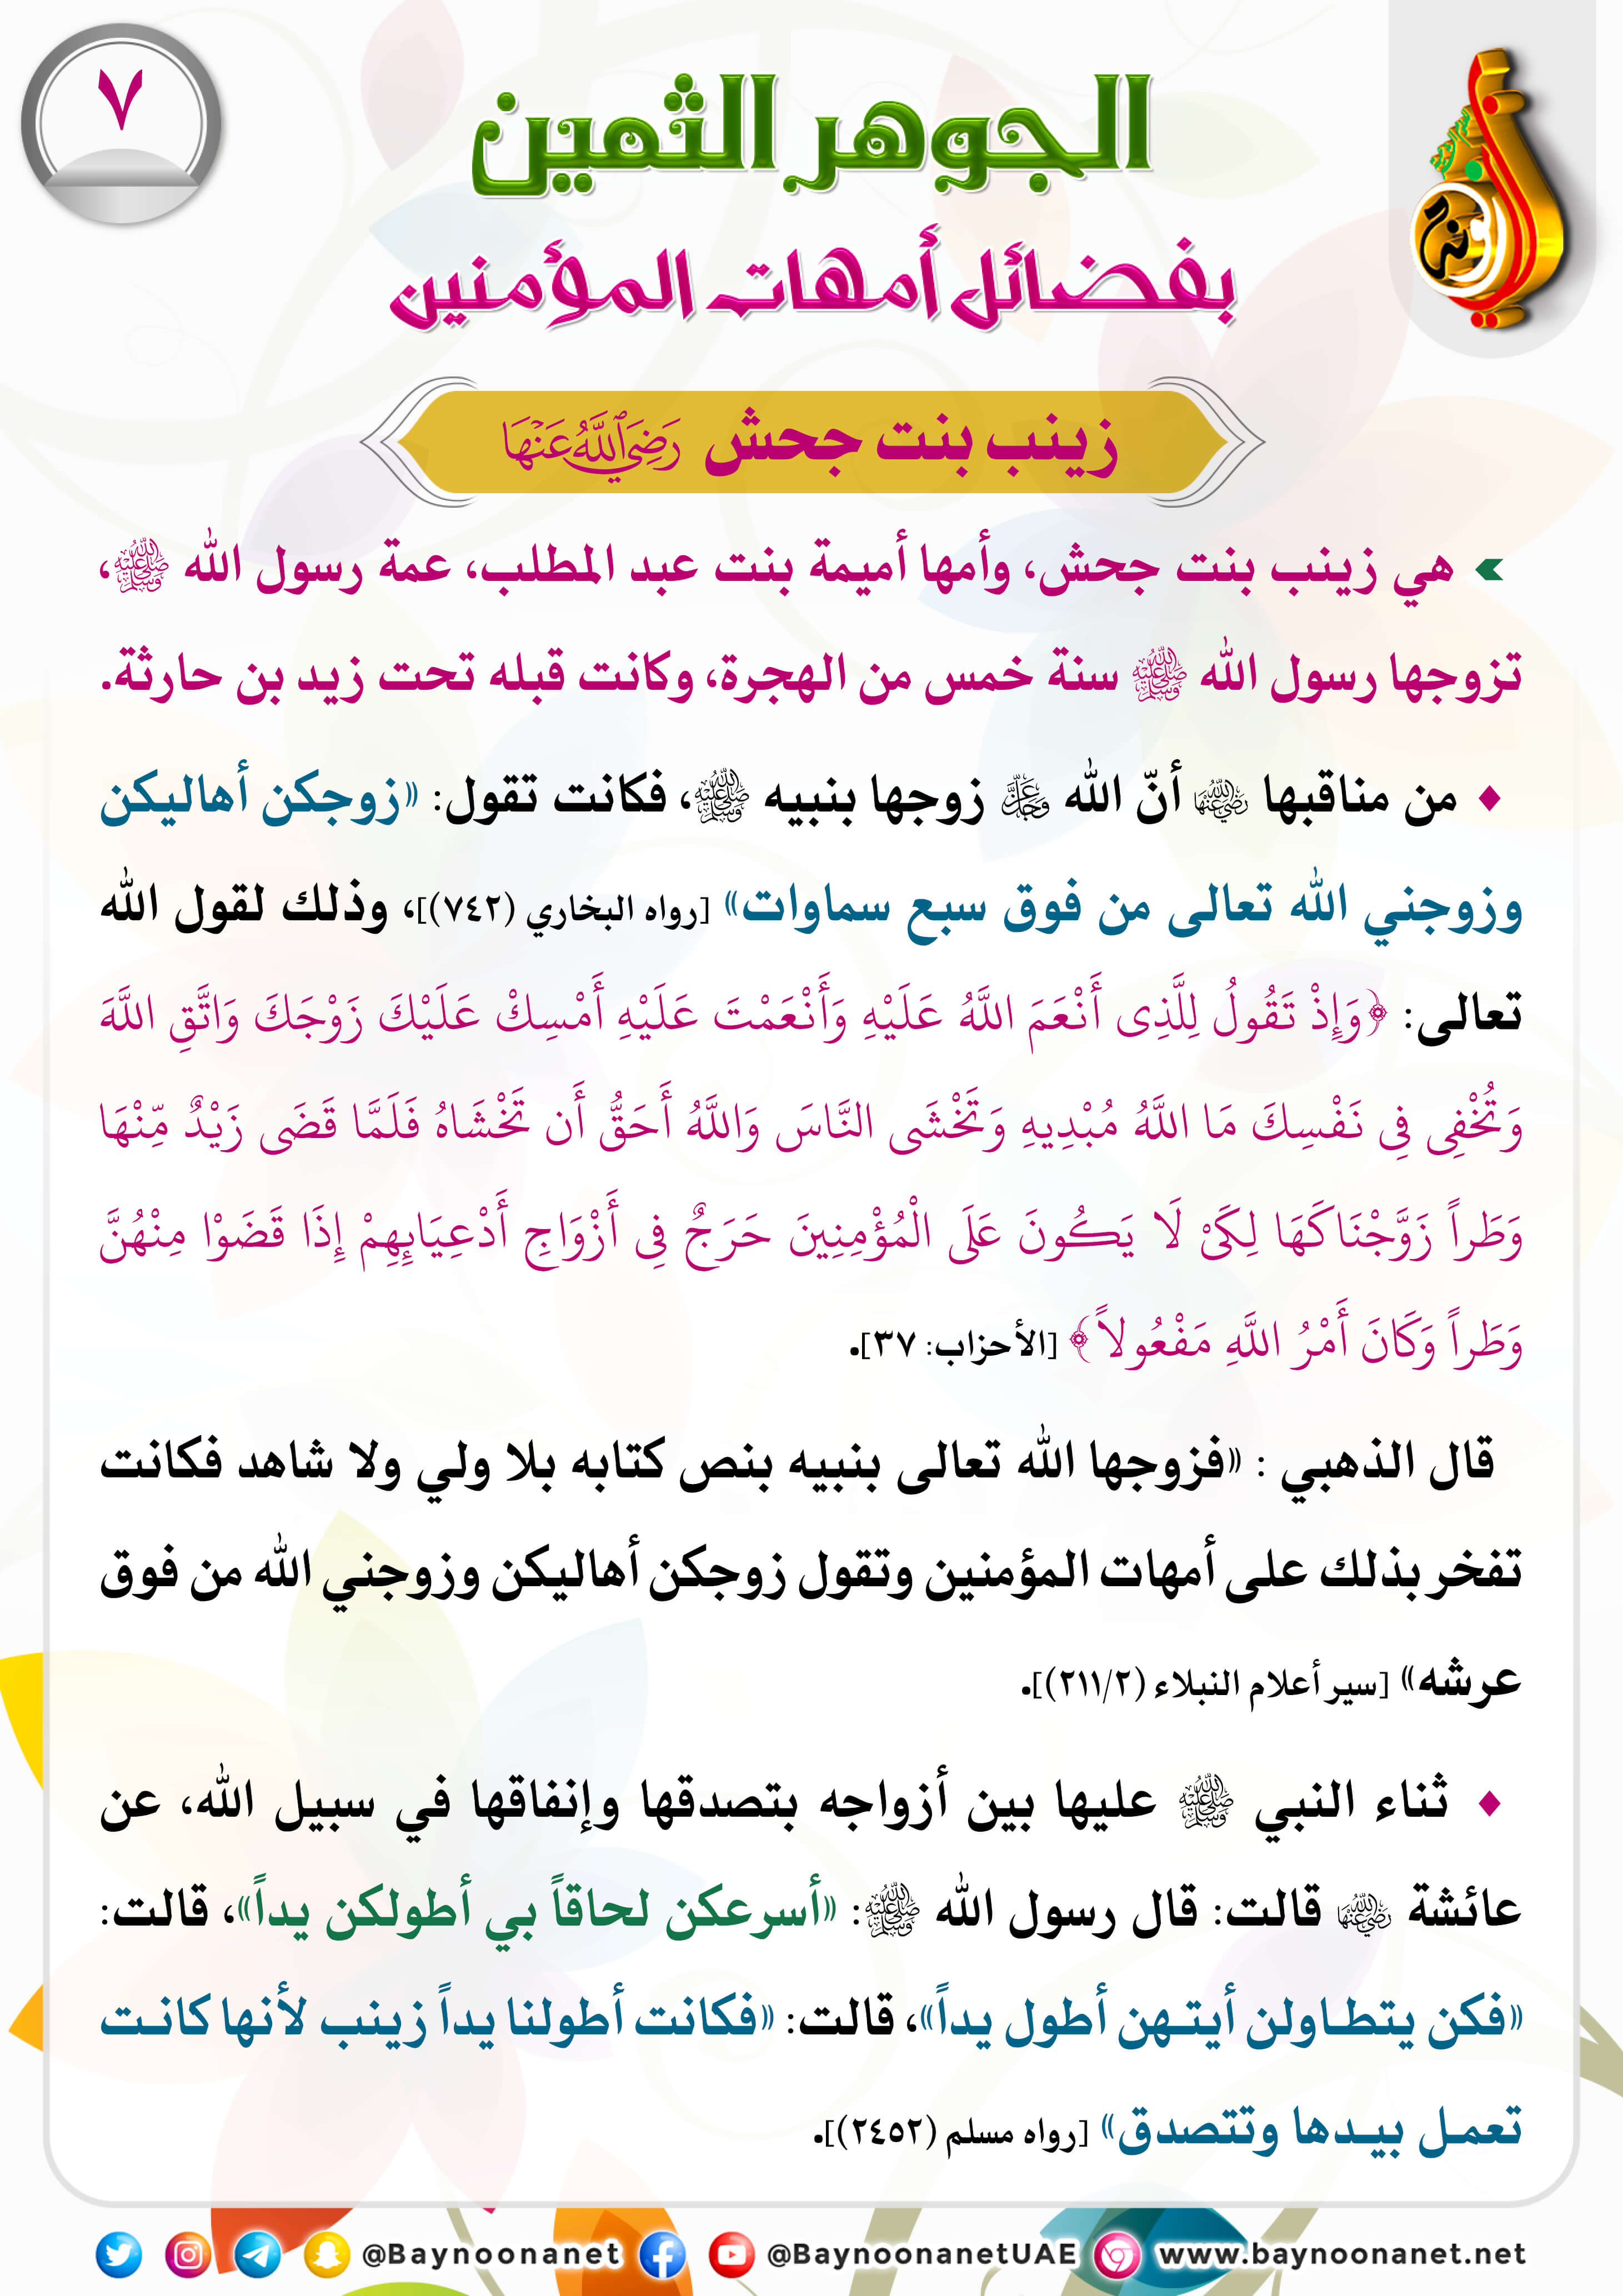 ٧
الجوهر الثمين
بفضائل أمهات المؤمنين
بينونة
زينب بنت جحش رَضِيَ اللَّهُ عَنْهَا
هي زينب بنت جحش، وأمها أميمة بنت عبد المطلب، عمة رسول الله ﷺ،
تزوجها رسول الله ﷺ سنة خمس من الهجرة، وكانت قبله تحت زيد بن حارثة.
♦ من مناقبها رضي الله عنها أنّ الله عز وجل زوجها بنبيه ﷺ، فكانت تقول: «زوجكن أهاليكن
وزوجني الله تعالى من فوق سبع سماوات» [رواه البخاري (٧٤٢)]، وذلك لقول الله
تعالى: ﴿وَإِذْ تَقُولُ لِلَّذِى أَنْعَمَ اللَّهُ عَلَيْهِ وَأَنْعَمْتَ عَلَيْهِ أَمْسِكْ عَلَيْكَ زَوْجَكَ وَاتَّقِ اللَّهَ
وَتُخْفِى فِى نَفْسِكَ مَا اللَّهُ مُبْدِيهِ وَتَخْشَى النَّاسَ وَاللَّهُ أَحَقُّ أَن تَخْشَاهُ فَلَمَّا قَضَى زَيْدٌ مِّنْهَا
وَطَراً زَوَّجْنَاكَهَا لِكَىْ لَا يَكُونَ عَلَى الْمُؤْمِنِينَ حَرَجٌ فِى أَزْوَاجِ أَدْعِيَايِهِمْ إِذَا قَضَوْا مِنْهُنَّ
وَطَراً وَكَانَ أَمْرُ اللَّهِ مَفْعُولاً﴾ [الأحزاب: ٣٧].
قال الذهبي : «فزوجها الله تعالى بنبيه بنص كتابه بلا ولي ولا شاهد فكانت
تفخر بذلك على أمهات المؤمنين وتقول زوجكن أهاليكن وزوجني الله من فوق
عرشه» [سير أعلام النبلاء (٢١١/٢)].
♦ ثناء النبي ﷺ عليها بين أزواجه بتصدقها وإنفاقها في سبيل الله، عن
عائشة رضي الله عنها قالت: قال رسول الله ﷺ: «أسرعكن لحاقاً بي أطولكن يداً»، قالت:
«فكن يتطاولن أيتهن أطول يداً»، قالت: «فكانت أطولنا يداً زينب لأنها كانت
تعمل بيدها وتتصدق» [رواه مسلم (٢٤٥٢)].
@Baynoonanet @BaynoonanetUAE www.baynoonanet.net